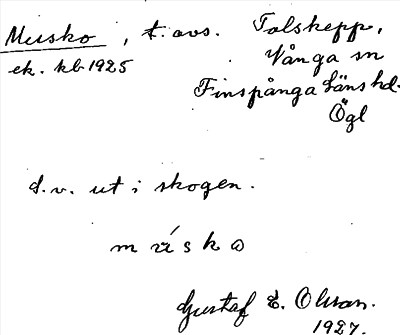 Musko, t. avs. Tolskepp,
ek. kb 1925 Vånga sn
Finspånga läns hd.
Ögl
d.v. ut i skogen.
músko
Gustaf E. Olsson.
1927.